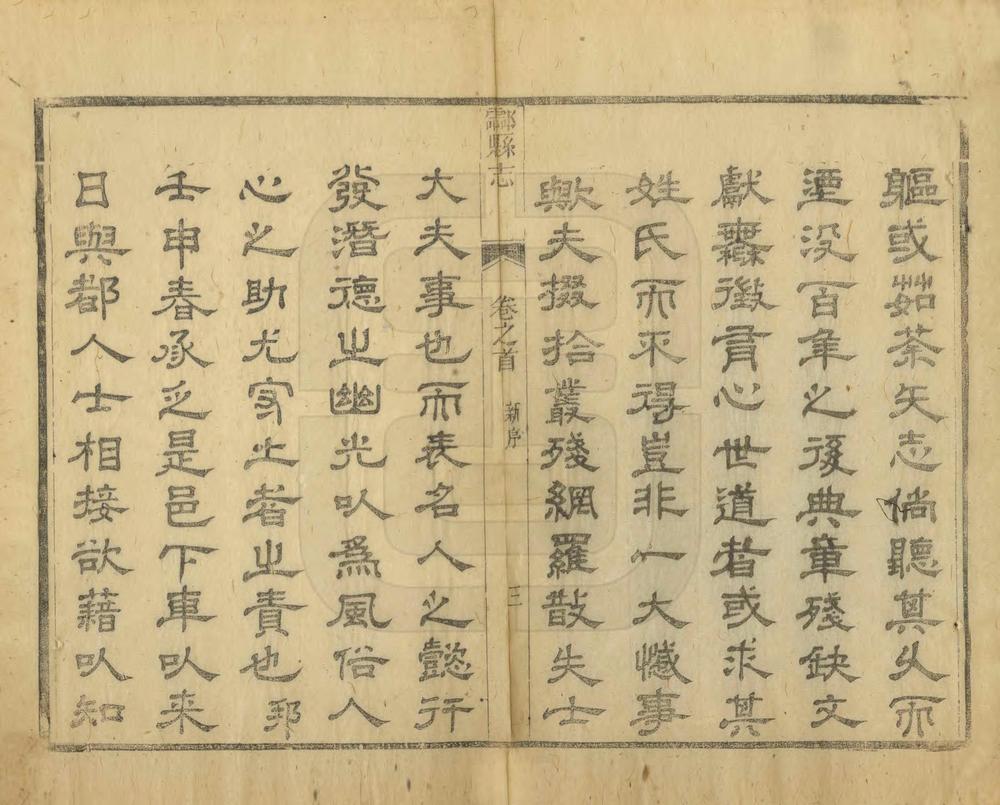 軀或茹荼矢志倘聽其久而
湮没百年之後典章殘缺文
獻無徵有心世道者或求其
姓氏而不得豈非一大憾事
歟夫掇拾叢殘網羅散失士
酃縣志
卷之首
新序
三
大夫事也而表名人之懿行
發潛德之幽光以為風俗人
心之助尤守土者之責也
壬申春承乏是邑下車以来
日與都人士相接欲藉以知